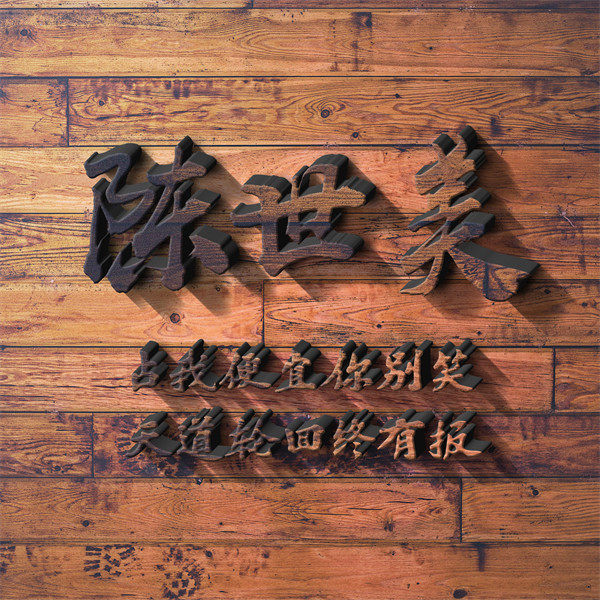 陈世美
占我便宜你别笑
天道轮回终有报